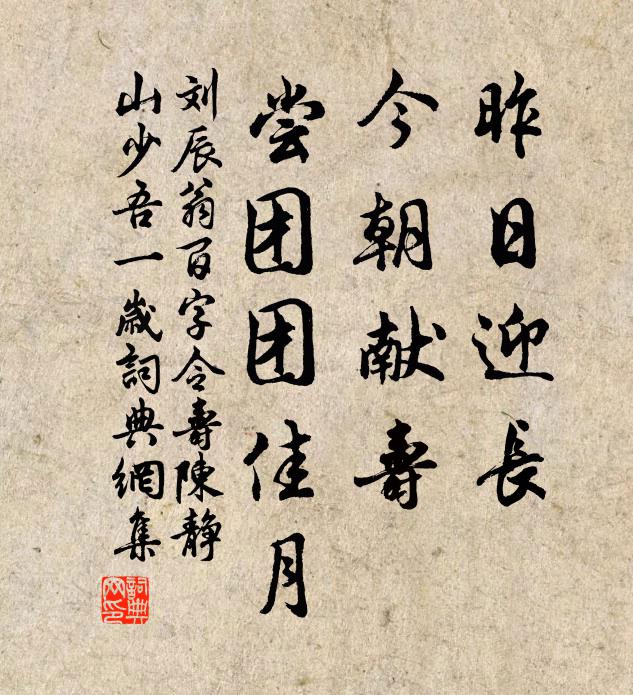 昨日迎长
今朝献寿
尝团团佳月
刘辰翁百字令寿陳静
山少吾一歲詞典網集
詞典网印